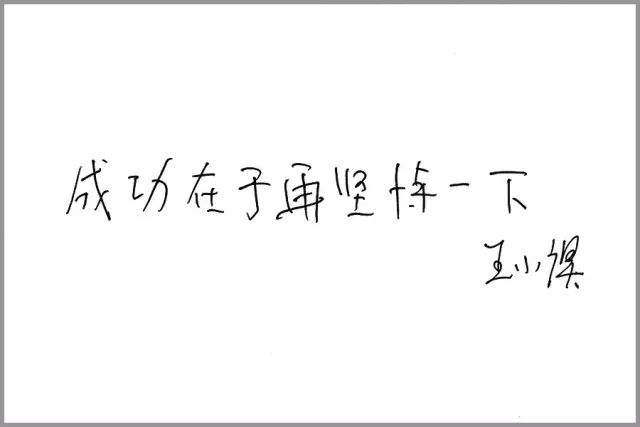 成功在于再坚持一下
王小